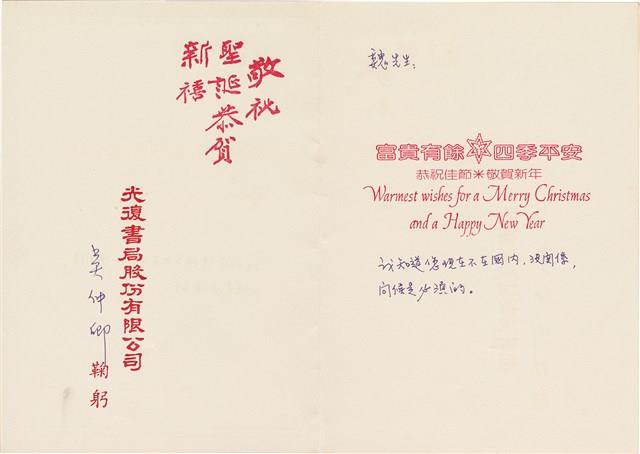 敬祝
聖誕恭賀
新禧
光復書局股份有限公司
吳仲卿 鞠躬
魏先生：
富貴有餘 四季平安
恭祝佳節＊敬賀新年
Warmest wishes for a Merry Christmas
and a Happy New Year
我知道您現在不在國內，沒關係，
問候是必須的。